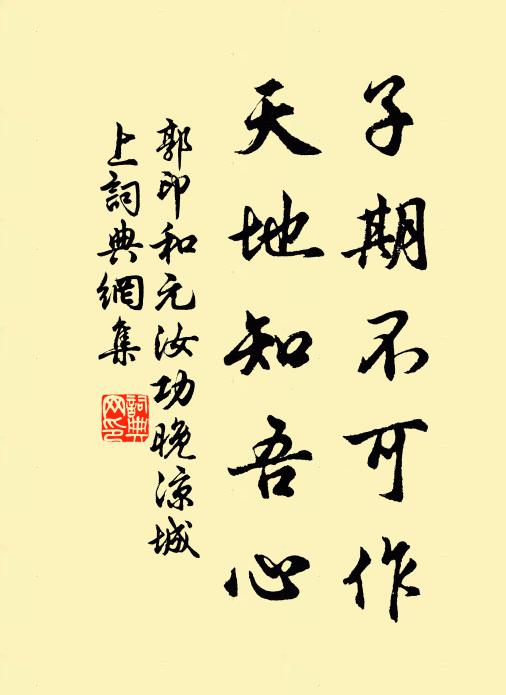 子期不可作
天地知吾心
郭印和元汝功晚凉城
上詞典網集
詞典
网印